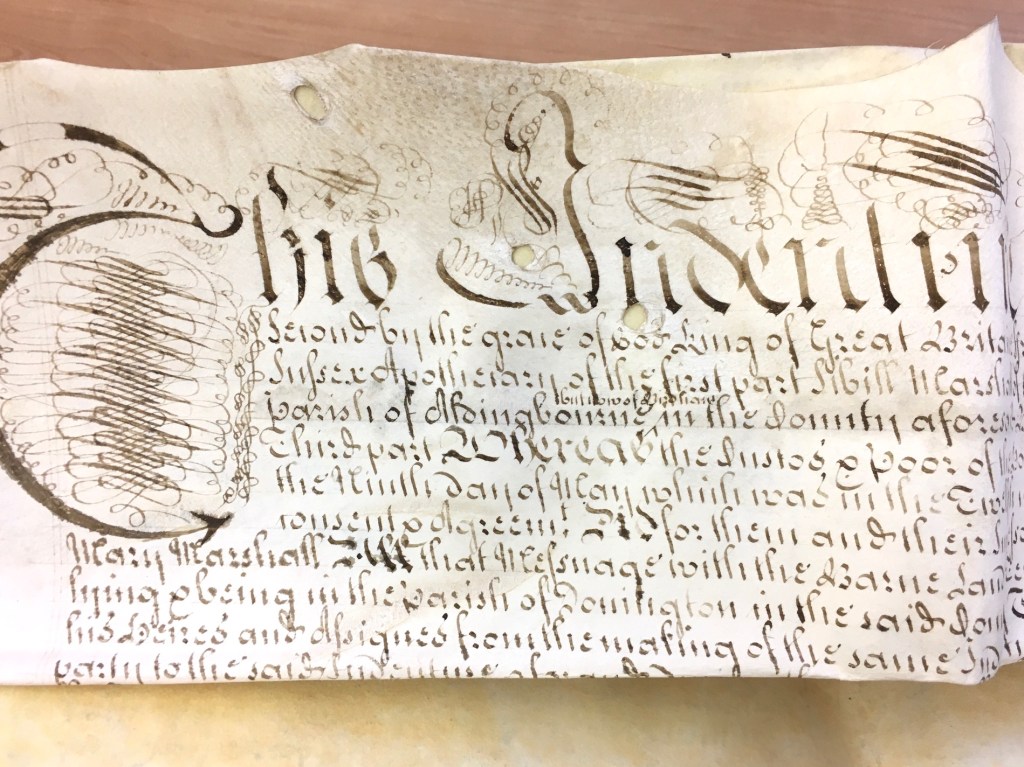 This Indentu
Second by the grace of God King of Great Brita
Sussex Apothecary of the first part Sibill Marsh
Parish of Aldingbourne in the County afores
Third part Whereas the Custos & Poor of
the Ninth day of May which was in the Twe
consent & Agreemt. And for them and their
Mary Marshall All that Messuage with the Barne Land
lying & being in the parish of Donington in the said Coun
his Heires and Assignes from the making of the same Ind
party to the said Indenture